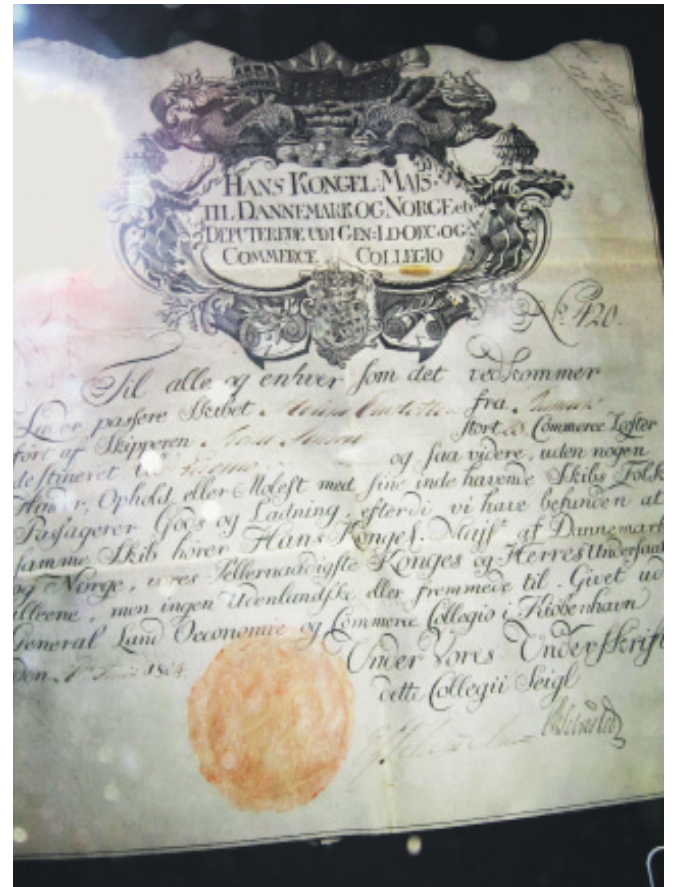 HANS KONGEL: MAJS.
TIL DANNEMARK OG NORGE etc
DEPUTEREDE UDI GEN: LD-OEC-OG
COMMERCE COLLEGIO
No. 420.
Til alle og enhver som det vedkommer
Lader passere Skibet fra
ført af Skipperen stort Commerce Læster
destineret til og saa videre, uden nogen
Hinder, Ophold eller Molest med sine inde havende Skibs Folk
Passagerer Gods og Ladning, efterdi vi have befunden at
samme Skib hører Hans Kongel. Majst. af Dannemark
og Norge, vores Allernaadigste Konges og Herres Undersaat
alleene, men ingen Udenlandske eller fremmede til. Givet ud
General Land Oeconomie og Commerce Collegio i Kiøbenhavn
den Juni 1804. Under Vores Underskrift
dette Collegii Seigl